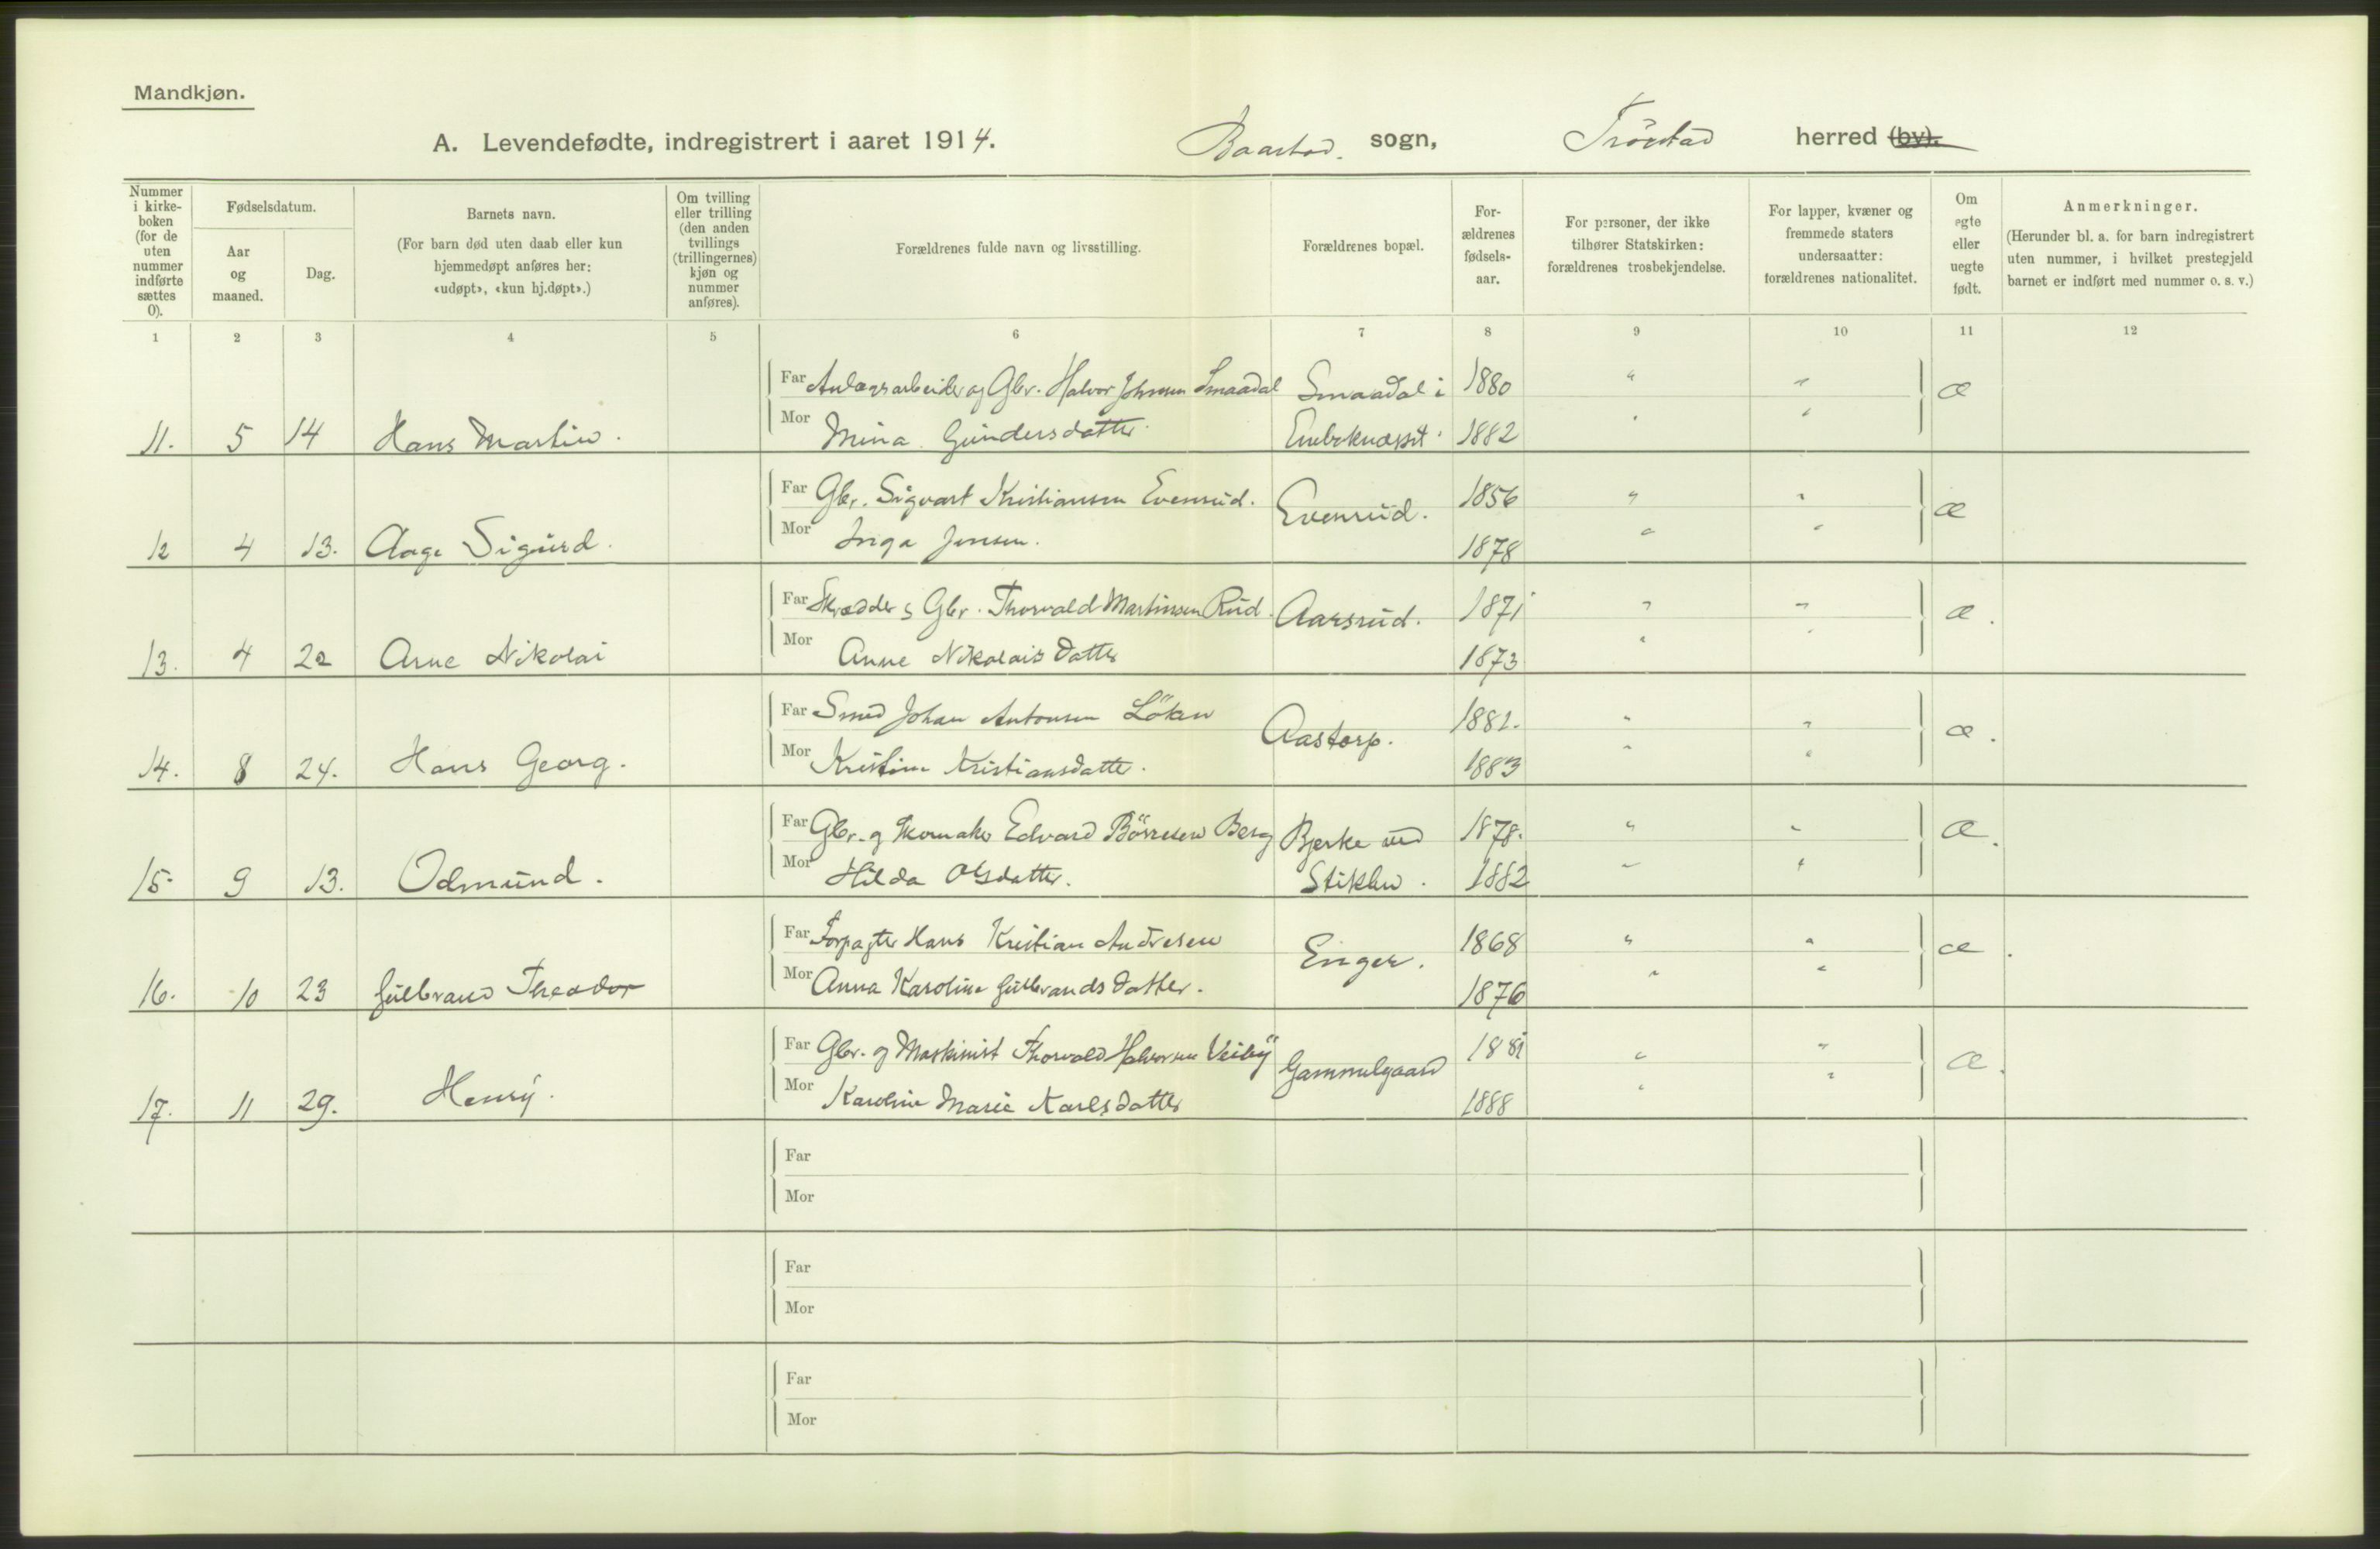 Mandkjøn.
A. Levendefødte, indregistrert i aaret 1914. Baastad. sogn, Tröstad herred (by).
Nummer i kirkeboken (for de uten nummer indførte sættes 0).
Fødselsdatum.
Aar og maaned.
Dag.
Barnets navn.
(For barn død uten daab eller kun hjemmedøpt anføres her: «udøpt», «kun hj.døpt».)
Om tvilling eller trilling (den anden tvillings (trillingernes) kjøn og nummer anføres).
Forældrenes fulde navn og livsstilling.
Forældrenes bopæl.
Forældrenes fødselsaar.
For personer, der ikke tilhører Statskirken: forældrenes trosbekjendelse.
For lapper, kvæner og fremmede staters undersaatter: forældrenes nationalitet.
Om egte eller uegte født.
Anmerkninger.
(Herunder bl. a. for barn indregistrert uten nummer, i hvilket prestegjeld barnet er indført med nummer o. s. v.)
1 2 3 4 5 6 7 8 9 10 11 12
Far Anlægsarbeider og Gbr. Halvor Johnsen Smaadal Smaadal i 1880 " " æ
11. 5 14 Hans Martin. Mor Mina Gundersdatter. 1882 " "
Far Gbr. Sigvart Kristiansen Evenrud. Evenrud. 1856 " " æ
12 4 13. Aage Sigurd. Mor Inga Jensen. 1878 " "
Far Skrædder & Gbr. Thorvald Martinsen Rud. Aarsrud. 1871 " " æ.
13. 4 22 Arne Nikolai Mor Anne Nikolais datter 1873 " "
Far Smed Johan Antonsen Löken Aastorp. 1881. " " æ.
14. 8 24. Hans Georg. Mor Kristine Kristiansdatter. 1883 " "
Far Gbr. og Skomaker Edvard Börresen Berg Bjerke ved 1878. " " æ.
15. 9 13. Odmund. Mor Hilda Olsdatter. Stiklen. 1882 " "
Far Forpagter Hans Kristian Andresen Enger. 1868 " " æ.
16. 10 23 Gulbrand Theodor Mor Anna Karoline Gulbrands datter. 1876 " "
Far Gbr. og Maskinist Thorvald Halvorsen Veiby Gammelgaard 1881 " " æ.
17. 11 29. Henry. Mor Karoline Marie Karlsdatter 1888 " "
Far
Mor
Far
Mor
Far
Mor